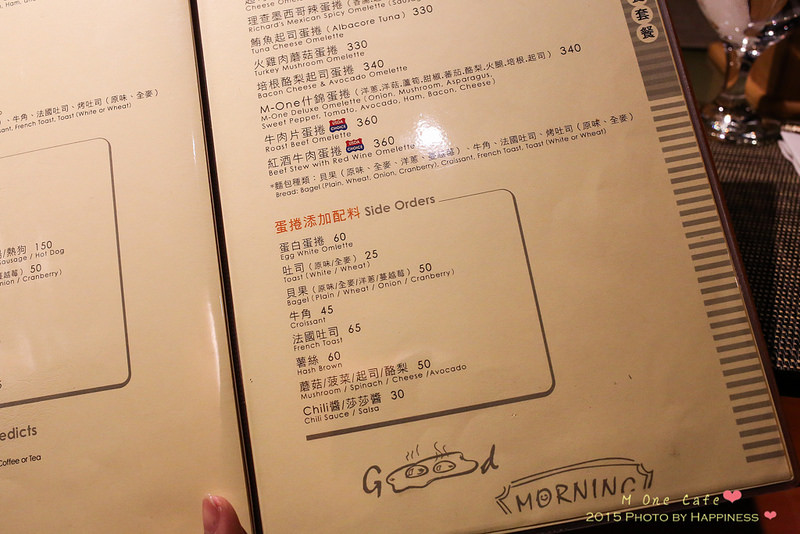 Cheese Omelette
理查墨西哥辣蛋捲
Richard's Mexican Spicy Omelette
鮪魚起司蛋捲 (Albacore Tuna) 330
Tuna Cheese Omelette
火雞肉蘑菇蛋捲 330
Turkey Mushroom Omelette
培根酪梨起司蛋捲 340
Bacon Cheese & Avocado Omelette
M-One什錦蛋捲 (洋蔥.洋菇.蘆筍.甜椒.蕃茄.酪梨.火腿.培根.起司) 340
M-One Deluxe Omelette (Onion, Mushroom, Asparagus,
Sweet Pepper, Tomato, Avocado, Ham, Bacon, Cheese)
牛肉片蛋捲 USDA CHOICE 360
Roast Beef Omelette
紅酒牛肉蛋捲 USDA CHOICE 360
Beef Stew with Red Wine Omelette
*麵包種類：貝果 (原味、全麥、洋蔥、蔓越莓)、牛角、法國吐司、烤吐司 (原味、全麥)
Bread: Bagel (Plain, Wheat, Onion, Cranberry), Croissant, French Toast, Toast (White or Wheat)
蛋捲添加配料 Side Orders
蛋白蛋捲 60
Egg White Omlette
吐司 (原味/全麥) 25
Toast (White / Wheat)
貝果 (原味/全麥/洋蔥/蔓越莓) 50
Bagel (Plain / Wheat / Onion / Cranberry)
牛角 45
Croissant
法國吐司 65
French Toast
薯絲 60
Hash Brown
蘑菇/菠菜/起司/酪梨 50
Mushroom / Spinach / Cheese / Avocado
Chili醬/莎莎醬 30
Chili Sauce / Salsa
Good
MORNING
套餐
、牛角、法國吐司、烤吐司 (原味、全麥)
sant, French Toast, Toast (White or Wheat)
/熱狗 150
ausage / Hot Dog
蔓越莓) 50
nion / Cranberry)
edicts
Coffee or Tea
M One Cafe
2015 PHOTO BY HAPPINESS